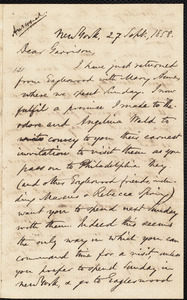 New York, 27 Sept. 1858.
Dear Garrison,
I have just returned
from Eagleswood with
where we spent Sunday. I now
fulfil a promise I made to
and Angelina Weld to
convey to you their earnest
invitation to visit them as you
pass on to Philadelphia. They
(and other Eagleswood friends in-
cluding Marcus & Rebecca Spring)
want you to spend next Sunday
with them. Indeed this seems
the only way in which you can
command time for a visit, unless
you prefer to spend Sunday in
New York, & go to Eagleswood